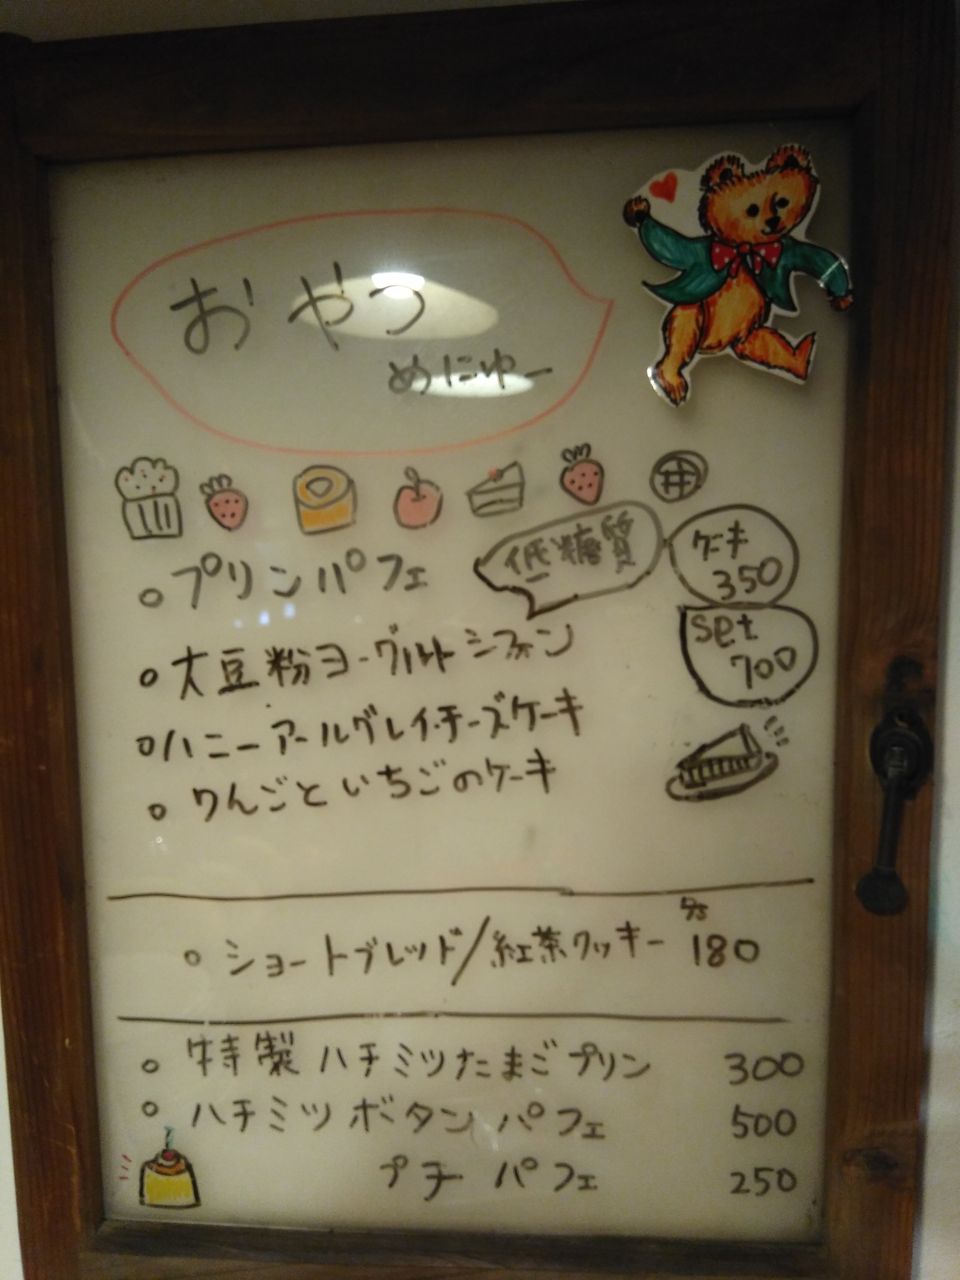 おやつ
めにゅー
プリンパフェ
低糖質
ケーキ
350
set
700
大豆粉ヨーグルトシフォン
ハニーアールグレイチーズケーキ
りんごといちごのケーキ
ショートブレッド/紅茶クッキー 180
特製ハチミツたまごプリン 300
ハチミツボタンパフェ 500
プチパフェ 250